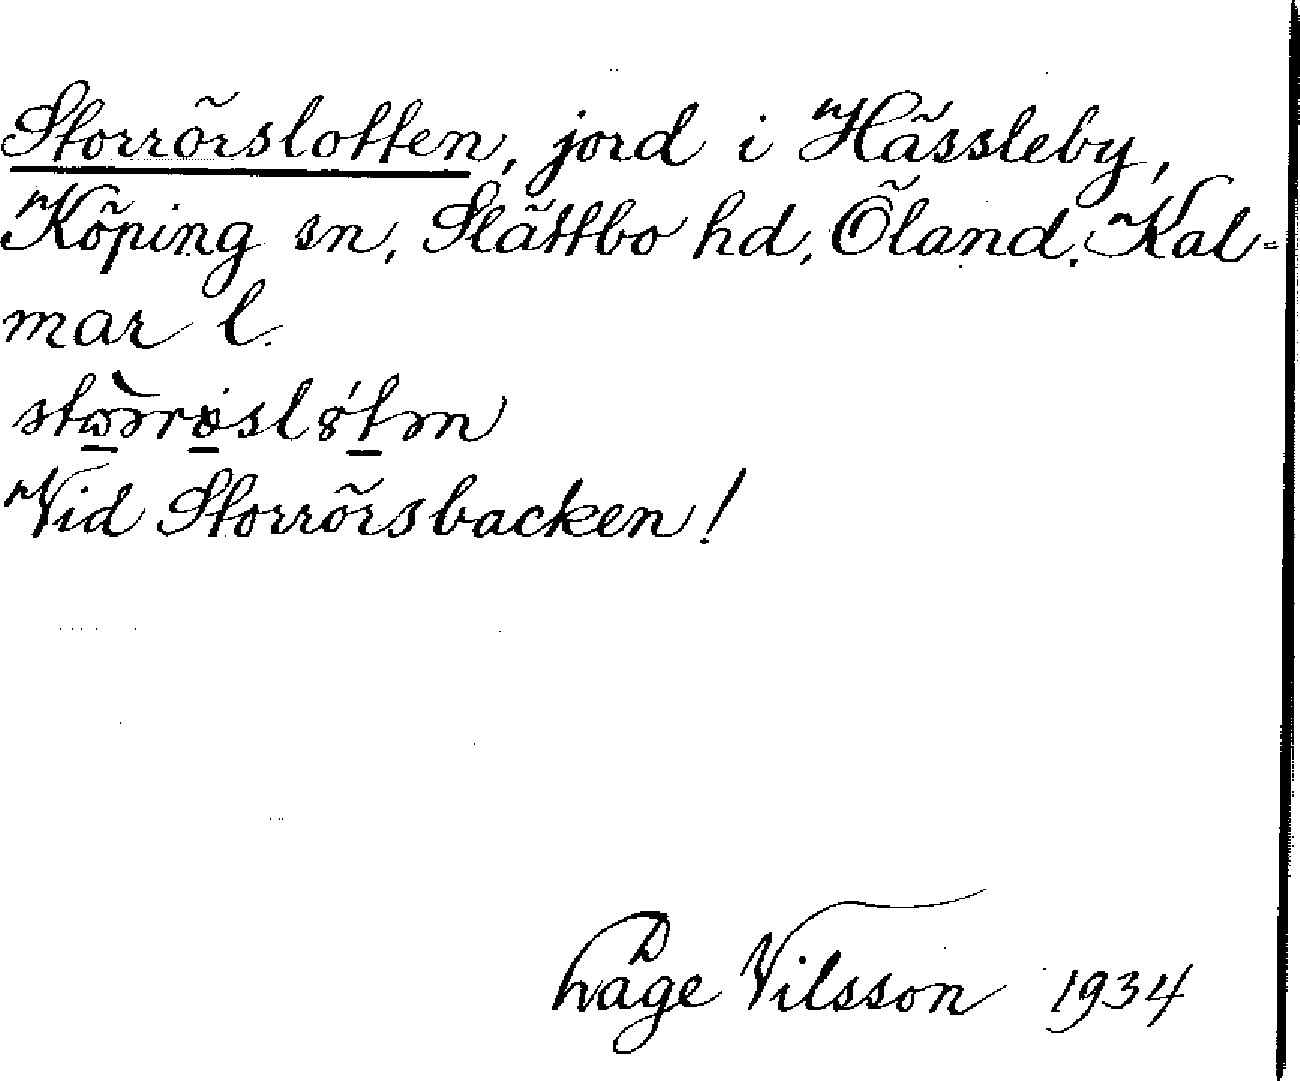 Storrörslotten, jord i Hässleby,
Köping sn, Slättbo hd, Öland. Kal-
mar l.
Vid Storrörsbacken!
Nilsson 1934